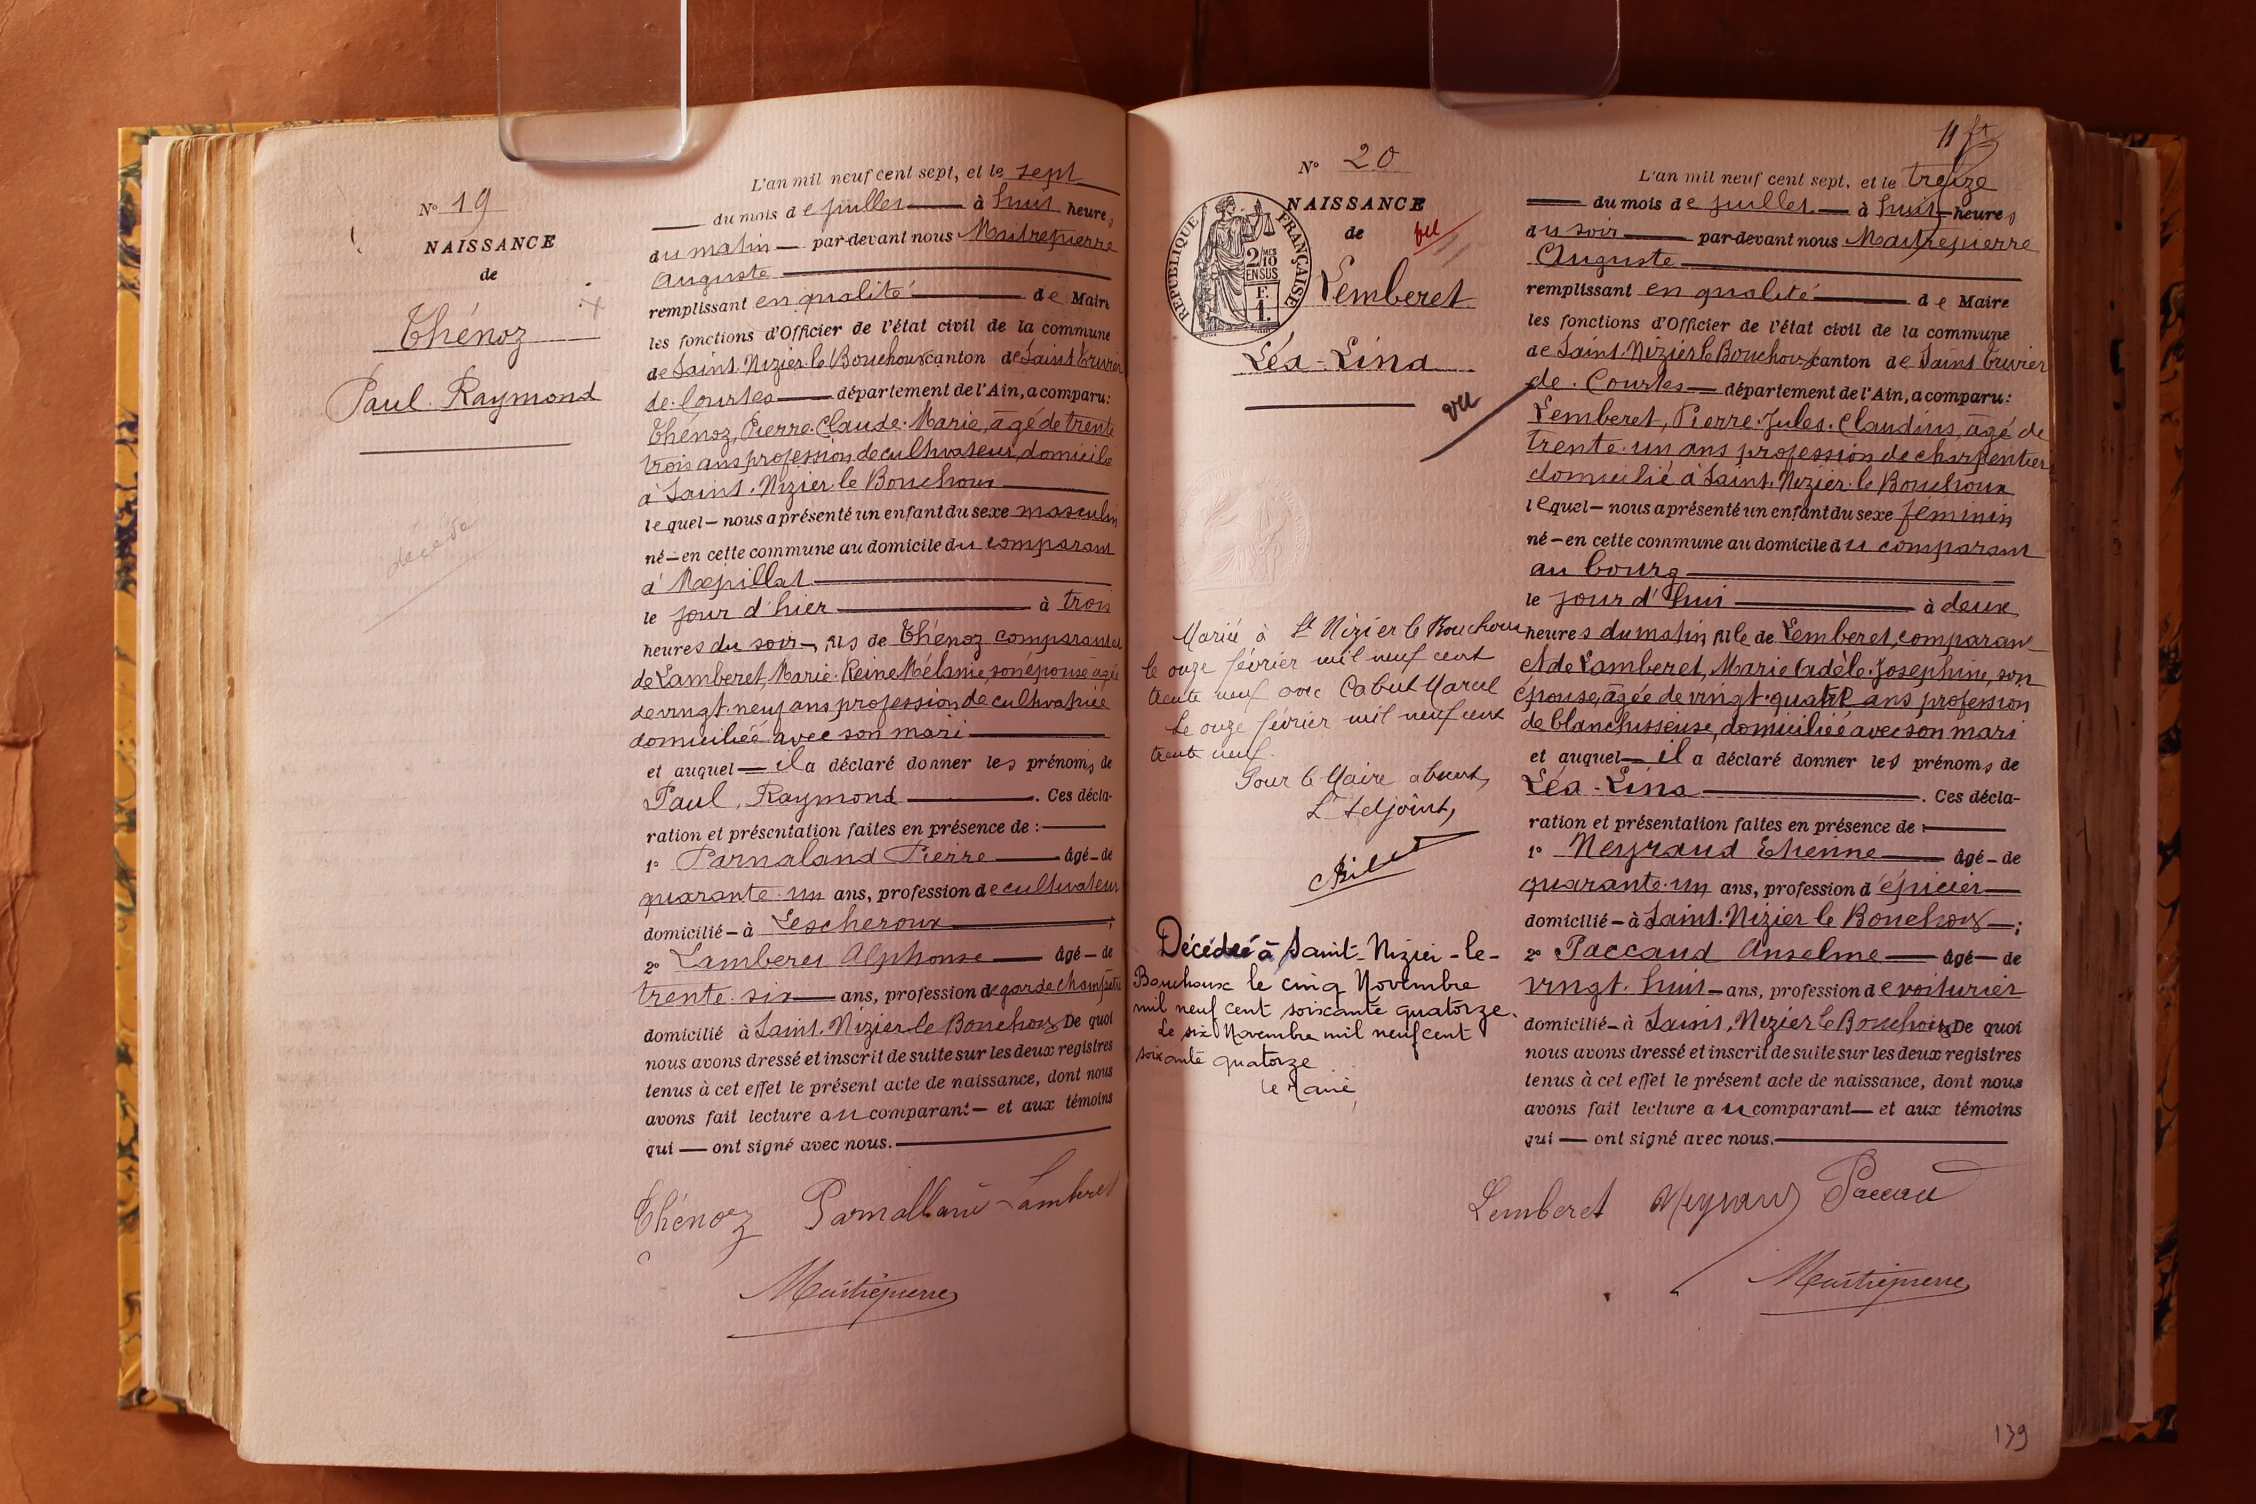 N° 19
NAISSANCE
de
Thénoz
Paul Raymond
décédé
L'an mil neuf cent sept, et le sept
du mois de juillet à huit heures
du matin par-devant nous Maitrepierre
Auguste
remplissant en qualité de Maire
les fonctions d'Officier de l'état civil de la commune
de Saint-Nizier-le-Bouchoux canton de Saint Trivier
de Courtes département de l'Ain, a comparu:
Thénoz, Pierre-Claude-Marie, âgé de trente
trois ans profession de cultivateur, domicilié
à Saint-Nizier-le Bouchoux
lequel nous a présenté un enfant du sexe masculin
né en cette commune au domicile du comparant
à Mépillat
le jour d'hier à trois
heures du soir, fils de Thénoz comparant et
de Lamberet, Marie-Reine Mélanie, son épouse âgée
de vingt-neuf ans profession de cultivatrice
domiciliée avec son mari
et auquel il a déclaré donner les prénoms de
Paul, Raymond. Ces décla-
ration et présentation faites en présence de :
1° Parnaland Pierre âgé de
quarante-un ans, profession de cultivateur
domicilié à Lescheroux;
2° Lamberet Alphonse âgé de
trente-six ans, profession de garde champêtre
domicilié à Saint-Nizier-le Bouchoux De quoi
nous avons dressé et inscrit de suite sur les deux registres
tenus à cet effet le présent acte de naissance, dont nous
avons fait lecture au comparant et aux témoins
qui ont signé avec nous.
Thénoz Parnalland Lamberet
Maitrepierre
11 ft
N° 20
NAISSANCE
de
vu
RÉPUBLIQUE FRANÇAISE
2/10 MES
EN SUS
F.
1.
Lemberet
Léa-Lina
vu
Mariée à St Nizier le Bouchoux
le onze février mil neuf cent
trente neuf avec Cabut Marcel
Le onze février mil neuf cent
trente neuf.
Pour le Maire absent,
L'adjoint,
Décédée à Saint-Nizier-le-
Bouchoux le cinq Novembre
mil neuf cent soixante quatorze.
Le six Novembre mil neuf cent
soixante quatorze
le Maire,
L'an mil neuf cent sept, et le treize
du mois de juillet à huit heures
du soir par-devant nous Maitrepierre
Auguste
remplissant en qualité de Maire
les fonctions d'Officier de l'état civil de la commune
de Saint-Nizier le Bouchoux canton de Saint Trivier
de Courtes département de l'Ain, a comparu:
Lemberet, Pierre-Jules-Claudius, âgé de
trente-un ans profession de charpentier
domicilié à Saint-Nizier-le Bouchoux
lequel nous a présenté un enfant du sexe féminin
né en cette commune au domicile du comparant
au bourg
le jour d'hui à deux
heures du matin, fille de Lemberet, comparant
et de Lamberet, Marie Adèle Joséphine, son
épouse, âgée de vingt-quatre ans profession
de blanchisseuse, domiciliée avec son mari
et auquel il a déclaré donner les prénoms de
Léa-Lina. Ces décla-
ration et présentation faites en présence de :
1° Neyraud Etienne âgé de
quarante-un ans, profession d'épicier
domicilié à Saint-Nizier le Bouchoux;
2° Paccaud Anselme âgé de
vingt-huit ans, profession de voiturier
domicilié à Saint-Nizier le Bouchoux De quoi
nous avons dressé et inscrit de suite sur les deux registres
tenus à cet effet le présent acte de naissance, dont nous
avons fait lecture au comparant et aux témoins
qui ont signé avec nous.
Lemberet Neyraud Paccaud
Maitrepierre
139